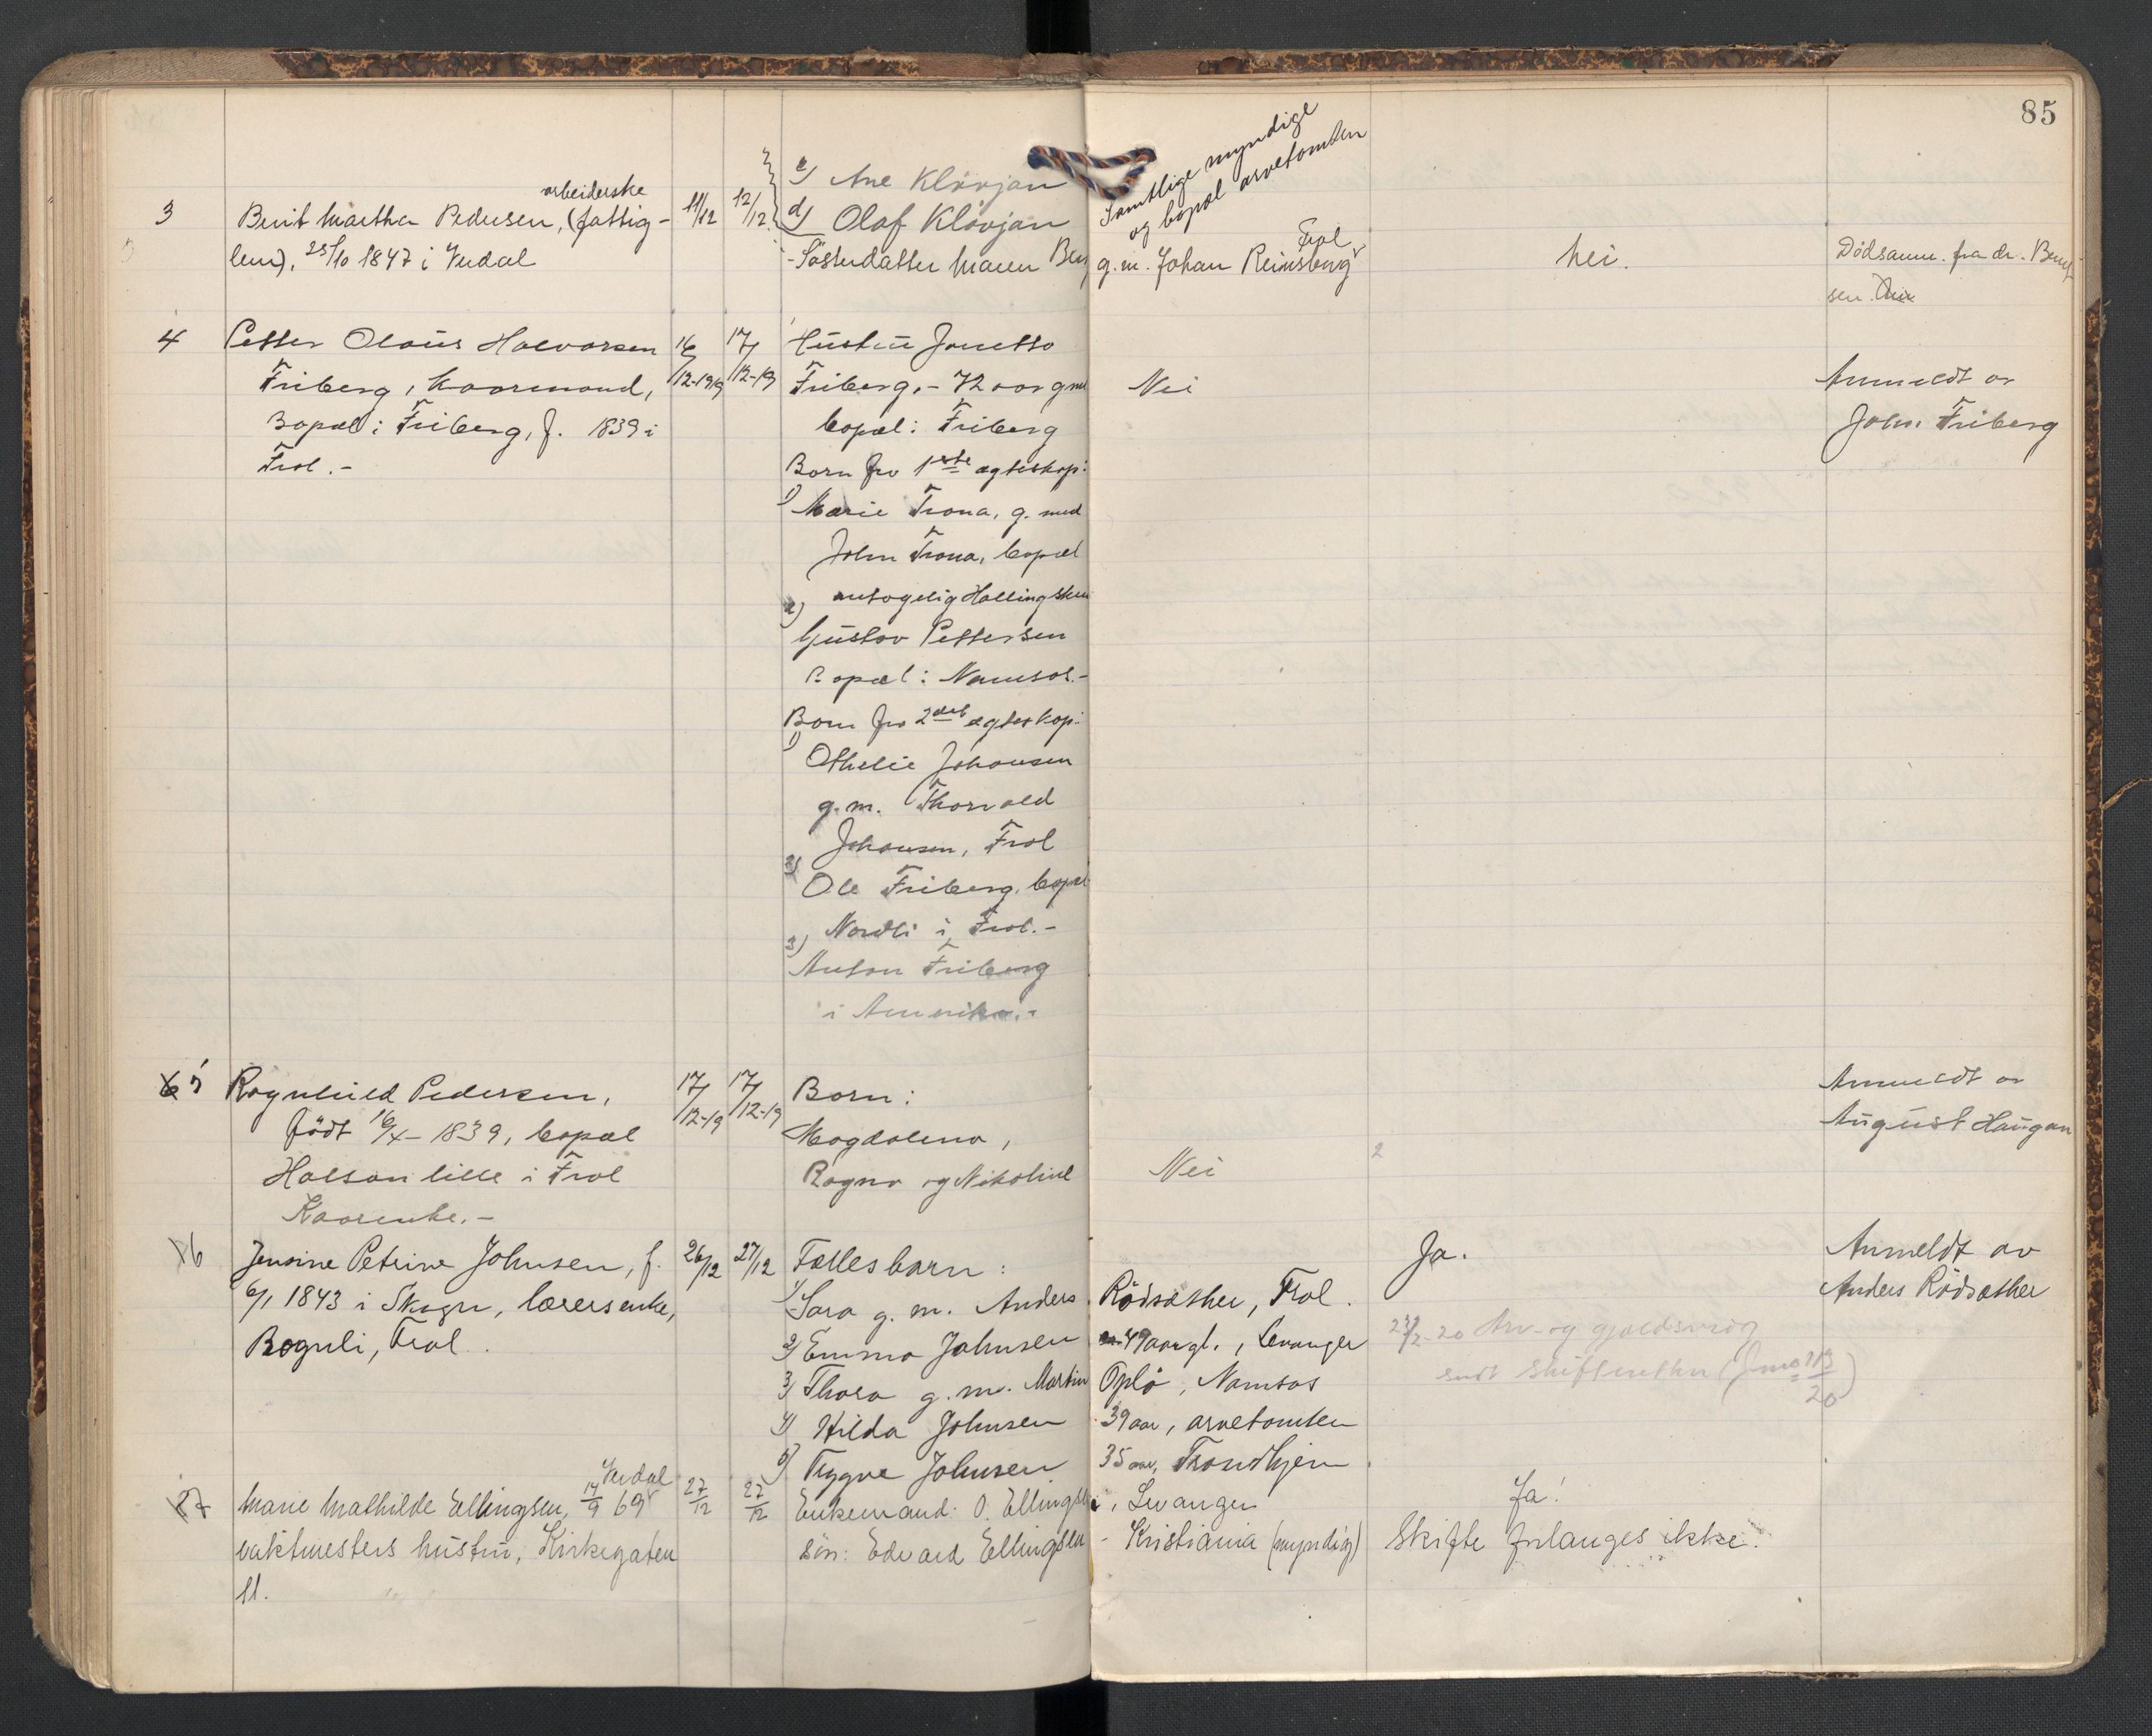 85
c) Ane Klövjan
d) Olaf Klövjan
Samtlige myndige
og bopæl arvetomten
3
arbeiderske
Berit Martha Pedersen, (fattig-
lem), 25/10 1847 i Verdal
11/12
12/12
-Søsterdatter Maren
g. m. Johan Reinsberg
Frol
Nei.
Dødsanm. fra dr.
4
Petter Olaus Halvorsen
Friberg, kaarmand,
Bopæl: Friberg, f. 1839 i
Frol.-
16/12-1919
17/12-19
Hustru Janetta
Friberg,- 72 aar gml
bopæl: Friberg
Barn fra 1ste ægteskap:
1) Marie Trona, g. med
John Trona, bopæl
antagelig Hallingskei
2)
Gustav Pettersen
Bopæl: Namsos.-
Barn fra 2det ægteskap:
1)
Othelie Johansen
g. m. Thorvald
Johansen, Frol
2)
Ole Friberg, bopæl
Nordli i Frol.-
3)
Anton Friberg
i Amerika.-
Nei
Anmeldt av
John Friberg
5
Ragnhild Pedersen,
født 16/4-1839, bopæl
Halsan lille i Frol
Kaarenke.-
17/12-19
17/12-19
Barn:
Magdalena,
Ragna og Nikoline
Nei
2
Anmeldt av
August Haugan
6
Jensine Petrine Johnsen, f.
6/1 1843 i Skogn, lærersenke,
Boguli, Frol.
26/12
27/12
Fællesbarn:
1) Sara g. m. Anders Rödsæther, Frol.
2) Emma Johnsen 49 aar gl., Levanger
3) Thora g. m. Martin Oplö, Namsos
4) Hilda Johnsen 39 aar, arvetomten
5) Tryggve Johnsen 35 aar, Trondhjem
Ja.
23/2-20 Arv- og gjældsvedg
sendt skifteretten
Anmeldt av
Anders Rödsæther
7
Verdal
Marie Mathilde Ellingsen, 14/9 69
vaktmesters hustru, Kirkegaten
11.
27/12
27/12
Enkemand: O. Ellingsen, Levanger
Sön: Edvard Ellingsen - Kristiania (myndig)
Ja!
Skifte forlanges ikke.